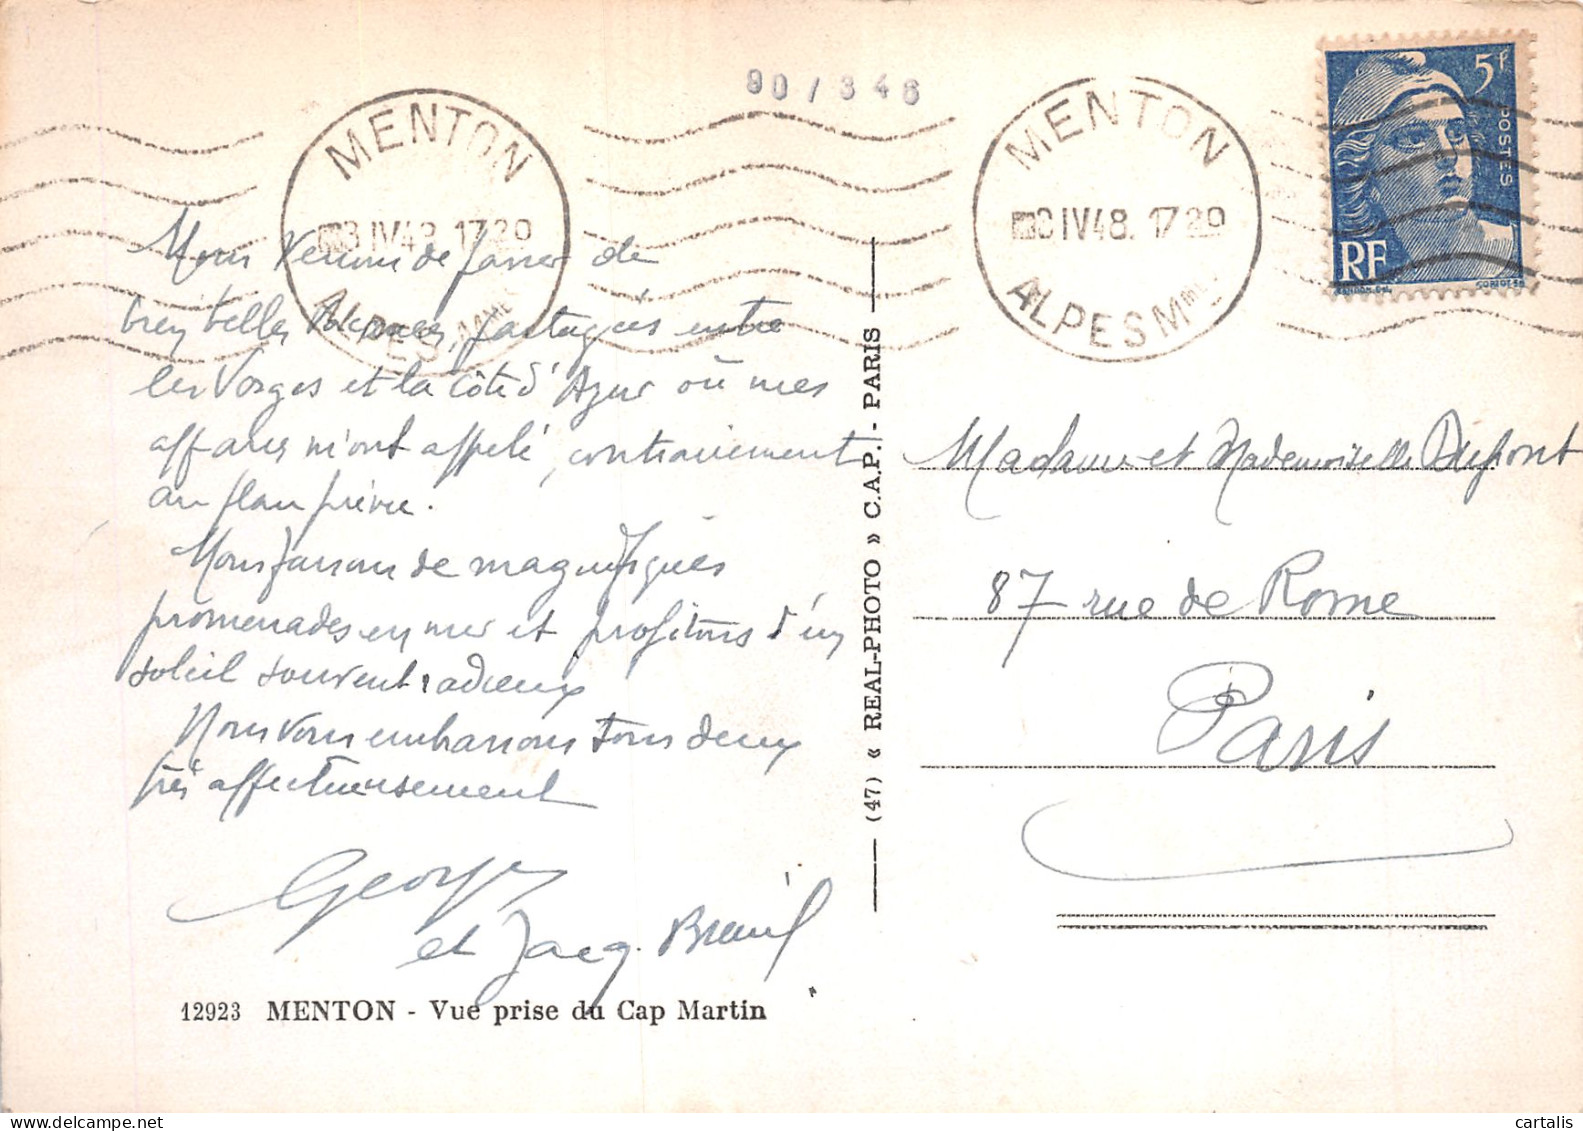 90/346
MENTON
3 IV 48. 17 29
ALPES Mmes
MENTON
3 IV 48. 17 29
ALPES Mmes
5F
POSTES
RF
Nous venons de passer de
très belles vacances, partagées entre
les Vosges et la Côte d'Azur où mes
affaires m'ont appelé, contrairement
au plan prévu.
Nous faisons de magnifiques
promenades en mer et profitons d'un
soleil souvent radieux
Nous vous embrassons tous deux
très affectueusement
Georges
et Jacq.
12923 MENTON - Vue prise du Cap Martin
(47) « REAL-PHOTO » C.A.P. - PARIS
Madame et Mademoiselle Dupont
87 rue de Rome
Paris
cartalis